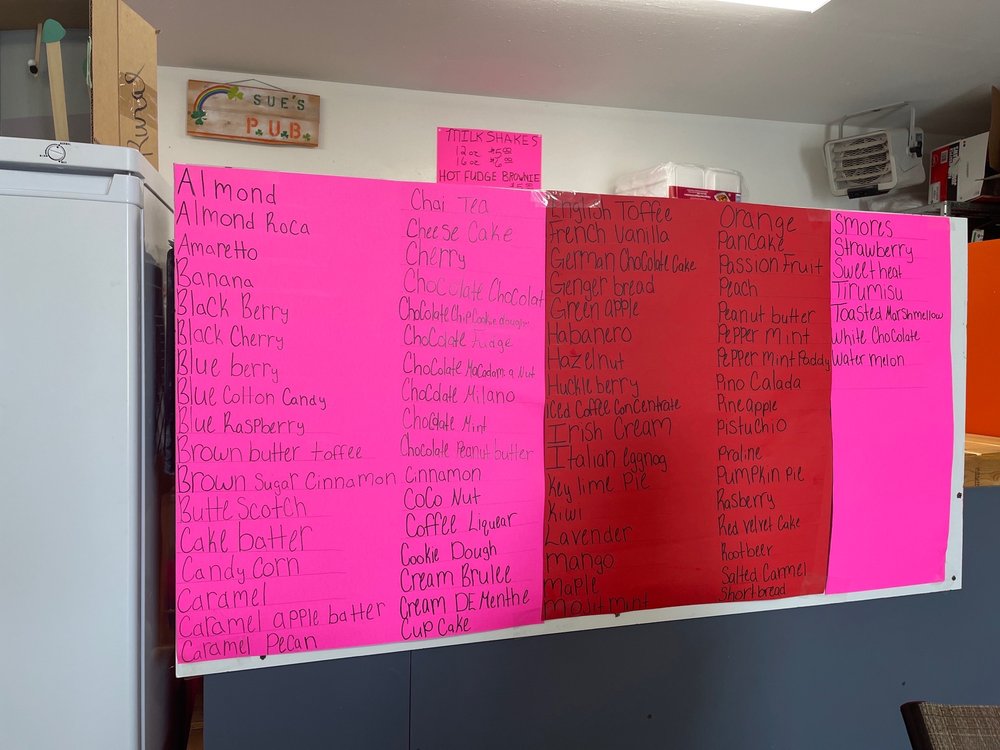 Runas
SUE'S
P.U.B.
MILKSHAKES
12 oz $5.00
16 oz $6.00
HOT FUDGE BROWNIE
$5.00
Almond
Almond Roca
Amaretto
Banana
Black Berry
Black Cherry
Blue berry
Blue Cotton Candy
Blue Raspberry
Brown butter toffee
Brown Sugar Cinnamon
Butte Scotch
Cake batter
Candy Corn
Caramel
Caramel apple batter
Caramel Pecan
Chai Tea
Cheese Cake
Cherry
Chocolate Chocolat
Chocolate Chip Cookie dough
Chocolate Fudge
Chocolate Macadam a Nut
Chocolate Milano
Chocolate Mint
Chocolate Peanut butter
Cinnamon
Coco Nut
Coffee Liquear
Cookie Dough
Cream Brulee
Cream DE Menthe
Cup Cake
English Toffee
French Vanilla
German Chocolate Cake
Genger bread
Green apple
Habanero
Hazelnut
Huckleberry
Iced Coffee Concentrate
Irish Cream
Italian eggnog
Key lime Pie
Kiwi
Lavender
Mango
Maple
Mojit mint
Orange
Pancake
Passion Fruit
Peach
Peanut butter
Pepper Mint
Pepper mint Paddy
Pino Calada
Pineapple
Pistuchio
Praline
Pumpkin Pie
Rasberry
Red velvet Cake
Rootbeer
Salted Carmel
Shortbread
Smores
Strawberry
Sweet heat
Tirumisu
Toasted Marshmellow
White Chocolate
Water melon